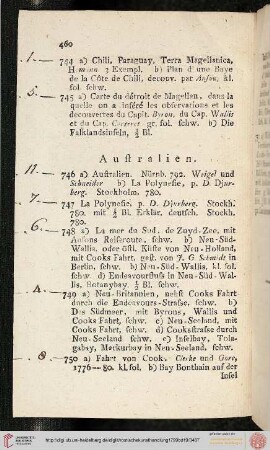 460
1.— 744 a) Chili, Paraguay, Terra Magellanica,
Homann 3 Exempl. b) Plan d'une Baye
de la Côte de Chili, decouv. par Anson, kl.
fol. schw.
5.— 745 a) Carte du détroit de Magellan, dans la
quelle on a inféré les observations et les
decouvertes du Capit. Byron, du Cap. Wallis
et du Cap. Carteret gr. fol. schw. b) Die
Falklandsinseln, ½ Bl.
Australien.
11.— 746 a) Australien. Nürnb. 792. Weigel und
Schneider b) La Polynesie, p. D. Djur-
berg. Stockholm. 780.
7.— 747 La Polynesie, p. D. Djurberg. Stockh.
780. mit ½ Bl. Erklär. deutsch. Stockh.
780.
6.— 748 a) La mer du Sud, de Zuyd-Zee, mit
Ansons Reiseroute, schw. b) Neu-Süd-
Wallis, oder östl. Küste von Neu-Holland,
mit Cooks Fahrt, gest. von J. G. Schmidt in
Berlin, schw. b) Neu-Süd-Wallis, kl. fol.
schw. d) Endeavourfluss in Neu-Süd-Wal-
lis, Botanybay, ½ Bl. schw.
749 a) Neu-Britannien, nebst Cooks Fahrt
durch die Endeavours-Strasse, schw. b)
Des Südmeer, mit Byrons, Wallis und
Cooks Fahrt, schw. c) Neu-Seeland, mit
Cooks Fahrt, schw. d) Cooksstrasse durch
Neu-Seeland schw. e) Inselbay, Tola-
gabay, Merkurbay in Neu-Seeland, schw.
8.— 750 a) Fahrt von Cook, Clerke und Gore,
1776—80. kl. fol. b) Bay Bonthain auf der
Insel